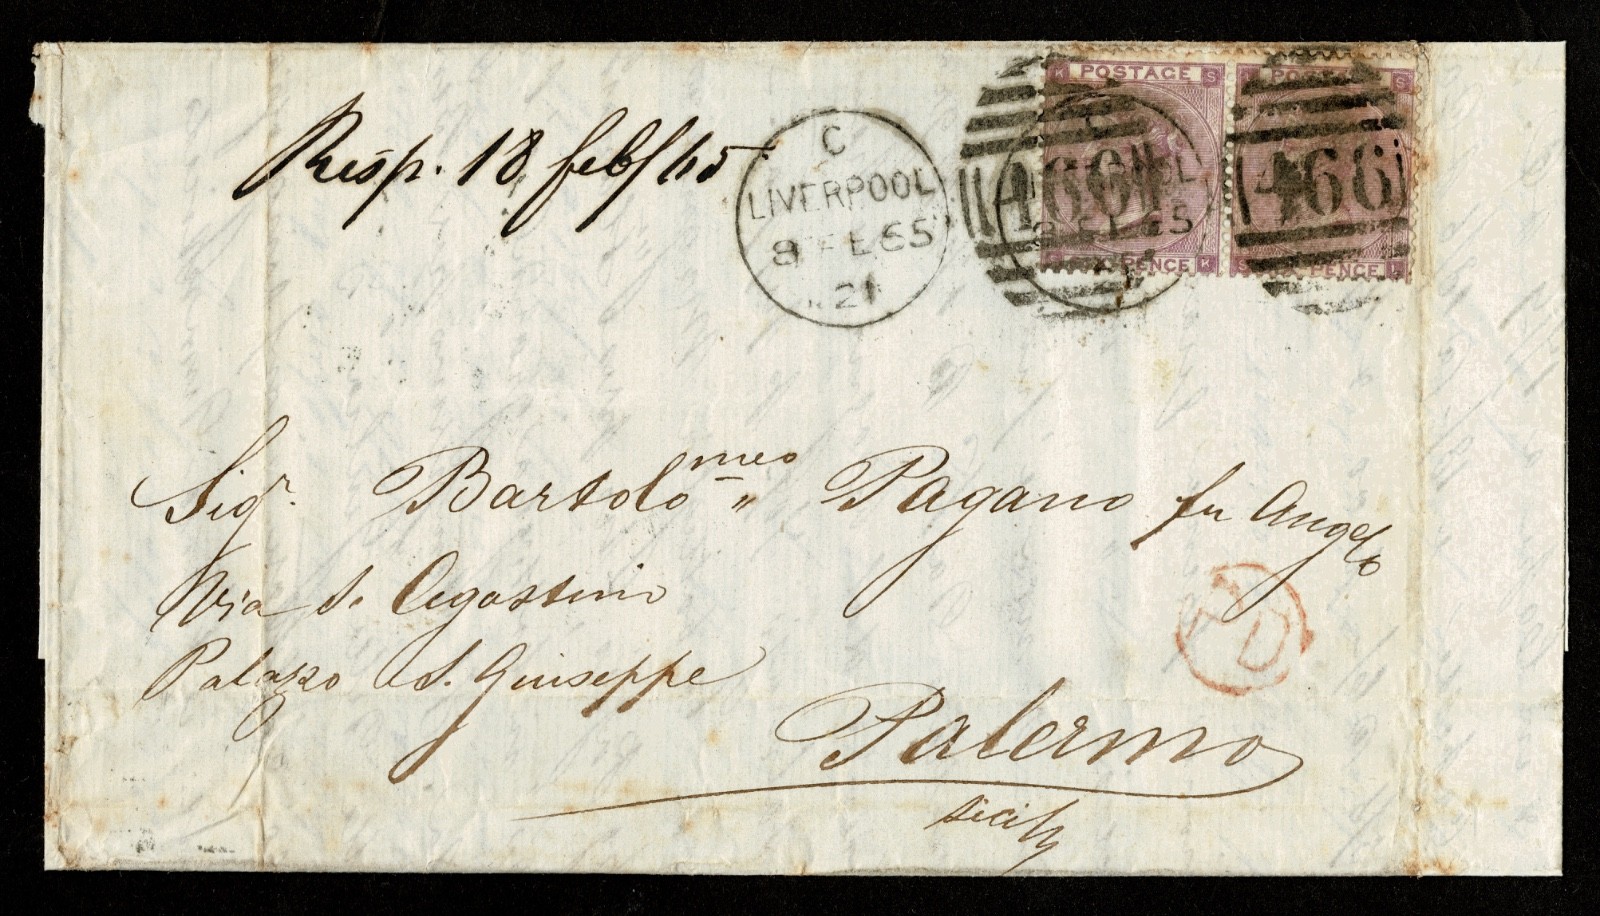 Resp. 18 feb/65
C
LIVERPOOL
8 FE 65
21
K POSTAGE S
466
S SIX PENCE K
L POSTAGE S
466
S SIX PENCE L
Sigr. Bartolomeo Pagano fu Angelo
Via S. Agostino
Palazzo S. Giuseppe
PD
Palermo
Sicily